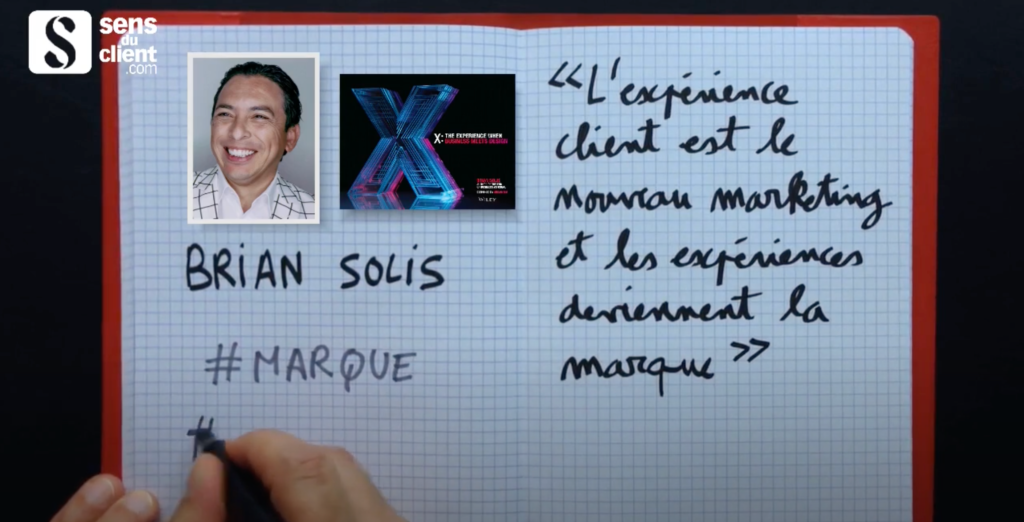 sens
du
client
.com
X: THE EXPERIENCE WHEN
BUSINESS MEETS DESIGN
WILEY
BRIAN SOLIS
#MARQUE
#
«L'expérience
client est le
nouveau marketing
et les expériences
deviennent la
marque»